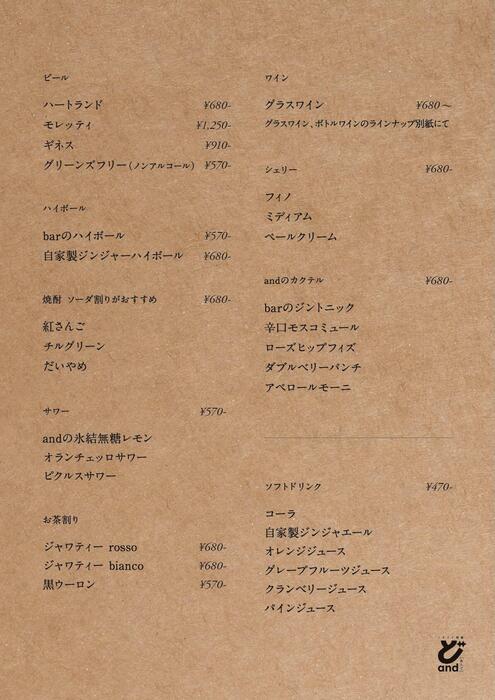 ビール
ハートランド ¥680-
モレッティ ¥1,250-
ギネス ¥910-
グリーンズフリー(ノンアルコール) ¥570-
ハイボール
barのハイボール ¥570-
自家製ジンジャーハイボール ¥680-
焼酎 ソーダ割りがおすすめ ¥680-
紅さんご
チルグリーン
だいやめ
サワー ¥570-
andの氷結無糖レモン
オランチェッロサワー
ピクルスサワー
お茶割り
ジャワティー rosso ¥680-
ジャワティー bianco ¥680-
黒ウーロン ¥570-
ワイン
グラスワイン ¥680〜
グラスワイン、ボトルワインのラインナップ別紙にて
シェリー ¥680-
フィノ
ミディアム
ペールクリーム
andのカクテル ¥680-
barのジントニック
辛口モスコミュール
ローズヒップフィズ
ダブルベリーパンチ
アペロールモーニ
ソフトドリンク ¥470-
コーラ
自家製ジンジャエール
オレンジジュース
グレープフルーツジュース
クランベリージュース
パインジュース
ど
and